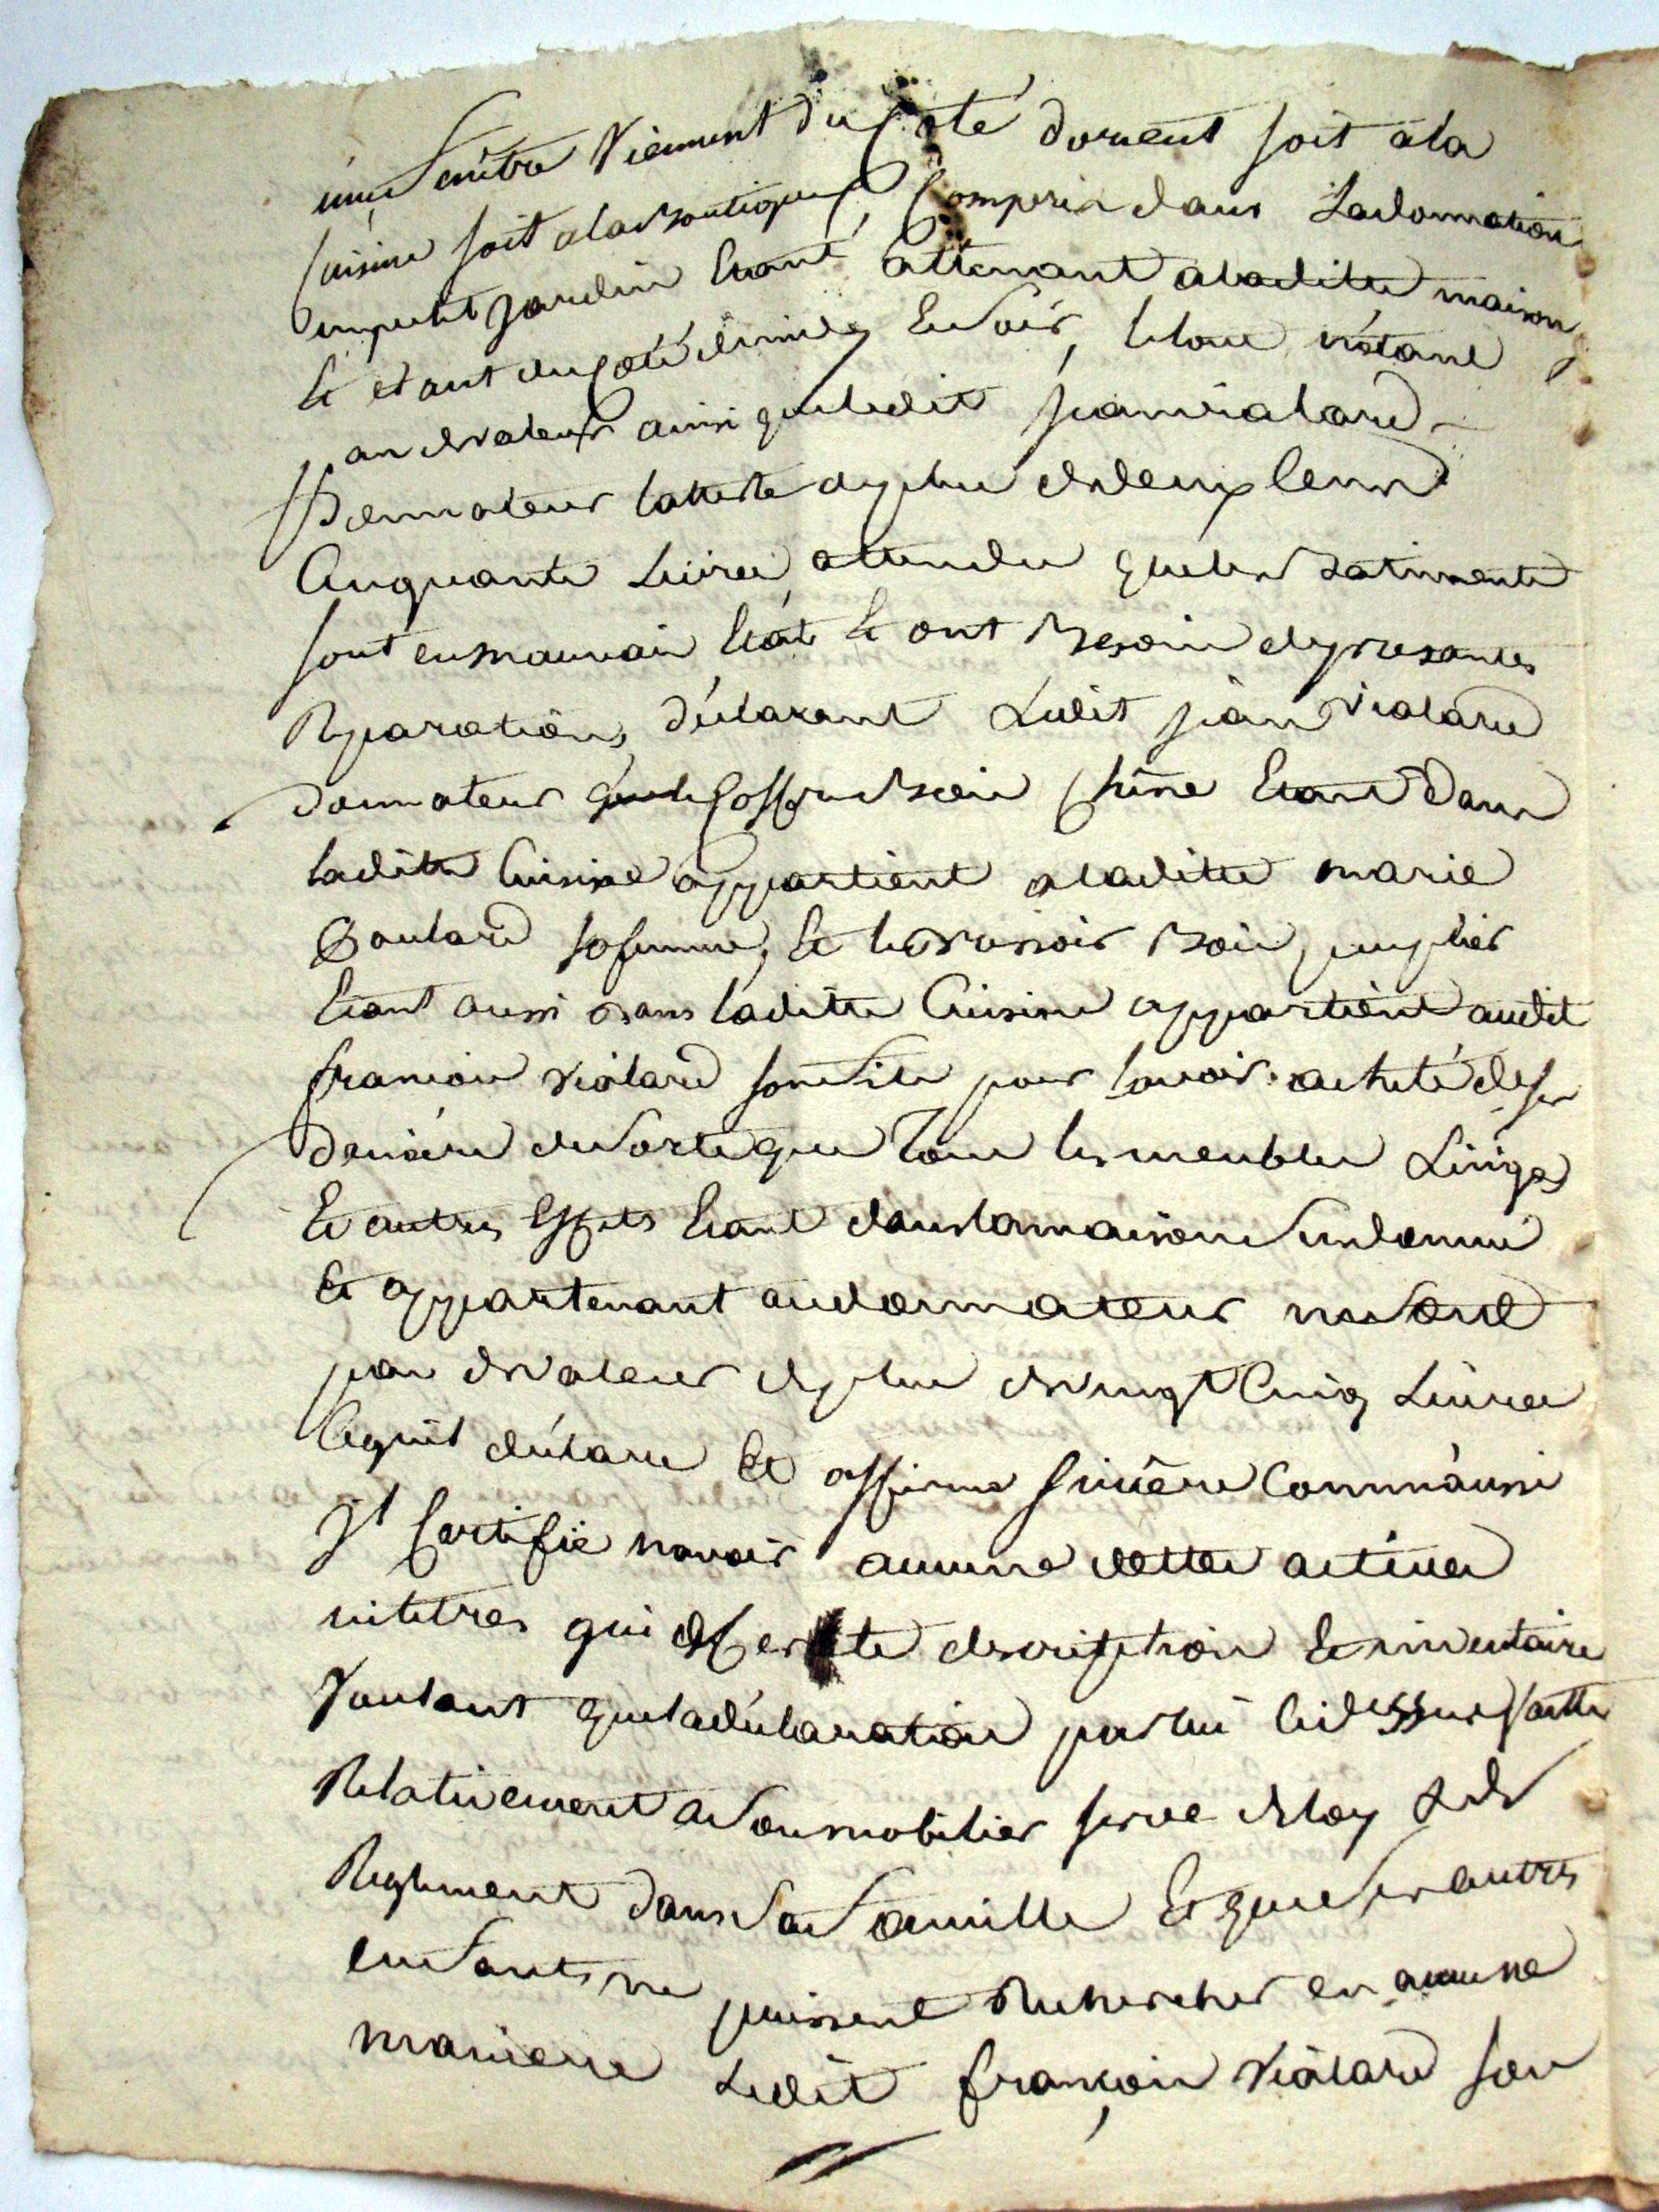 une fenètre Viennent du Coté dorient soit ala
Cuisine soit alaboutique, Compris dans Ladonnation
un petit jardin Etant attenant aladitte maison,
Et etant du Coté de midy Et soir, le tout n'étant
pas devaleur ainsi queledit jean vialard
Donnateur latteste de plus de deux Cens
Cinquante Livres, attendu queles Batiments
sont en mauvais Etat Et ont Besoin depresantes
Reparations, déclarant Ledit jean vialard
donnateur quele Coffre Bois Chêne Etant Dans
laditte Cuisine appartient aladitte marie
Boulard safemme, Et le dressoir Bois peuplier
Etant aussi dans laditte Cuisine appartient audit
françois vialard sonfils pour lavoir acheté deses
deniers desorte que Tous les meubles Linges
Et autres Effets Etant danslamaison susdonnée
Et appartenant audonnateur nesont
pas devaleur deplus devingt Cinq Livres
Cequil déclare Et affirme sincère Comm'aussi
Jl Certifie navoir aucune dettes actives
nititres qui description Et inventaire
Voulant queladéclaration parlui cidessus faitte
Relativement asonmobilier serve deloy Et de
Reglement dans sa famille Et que ses autres
enfants ne puissent Rechercher en aucune
maniere Ledit françois vialard son